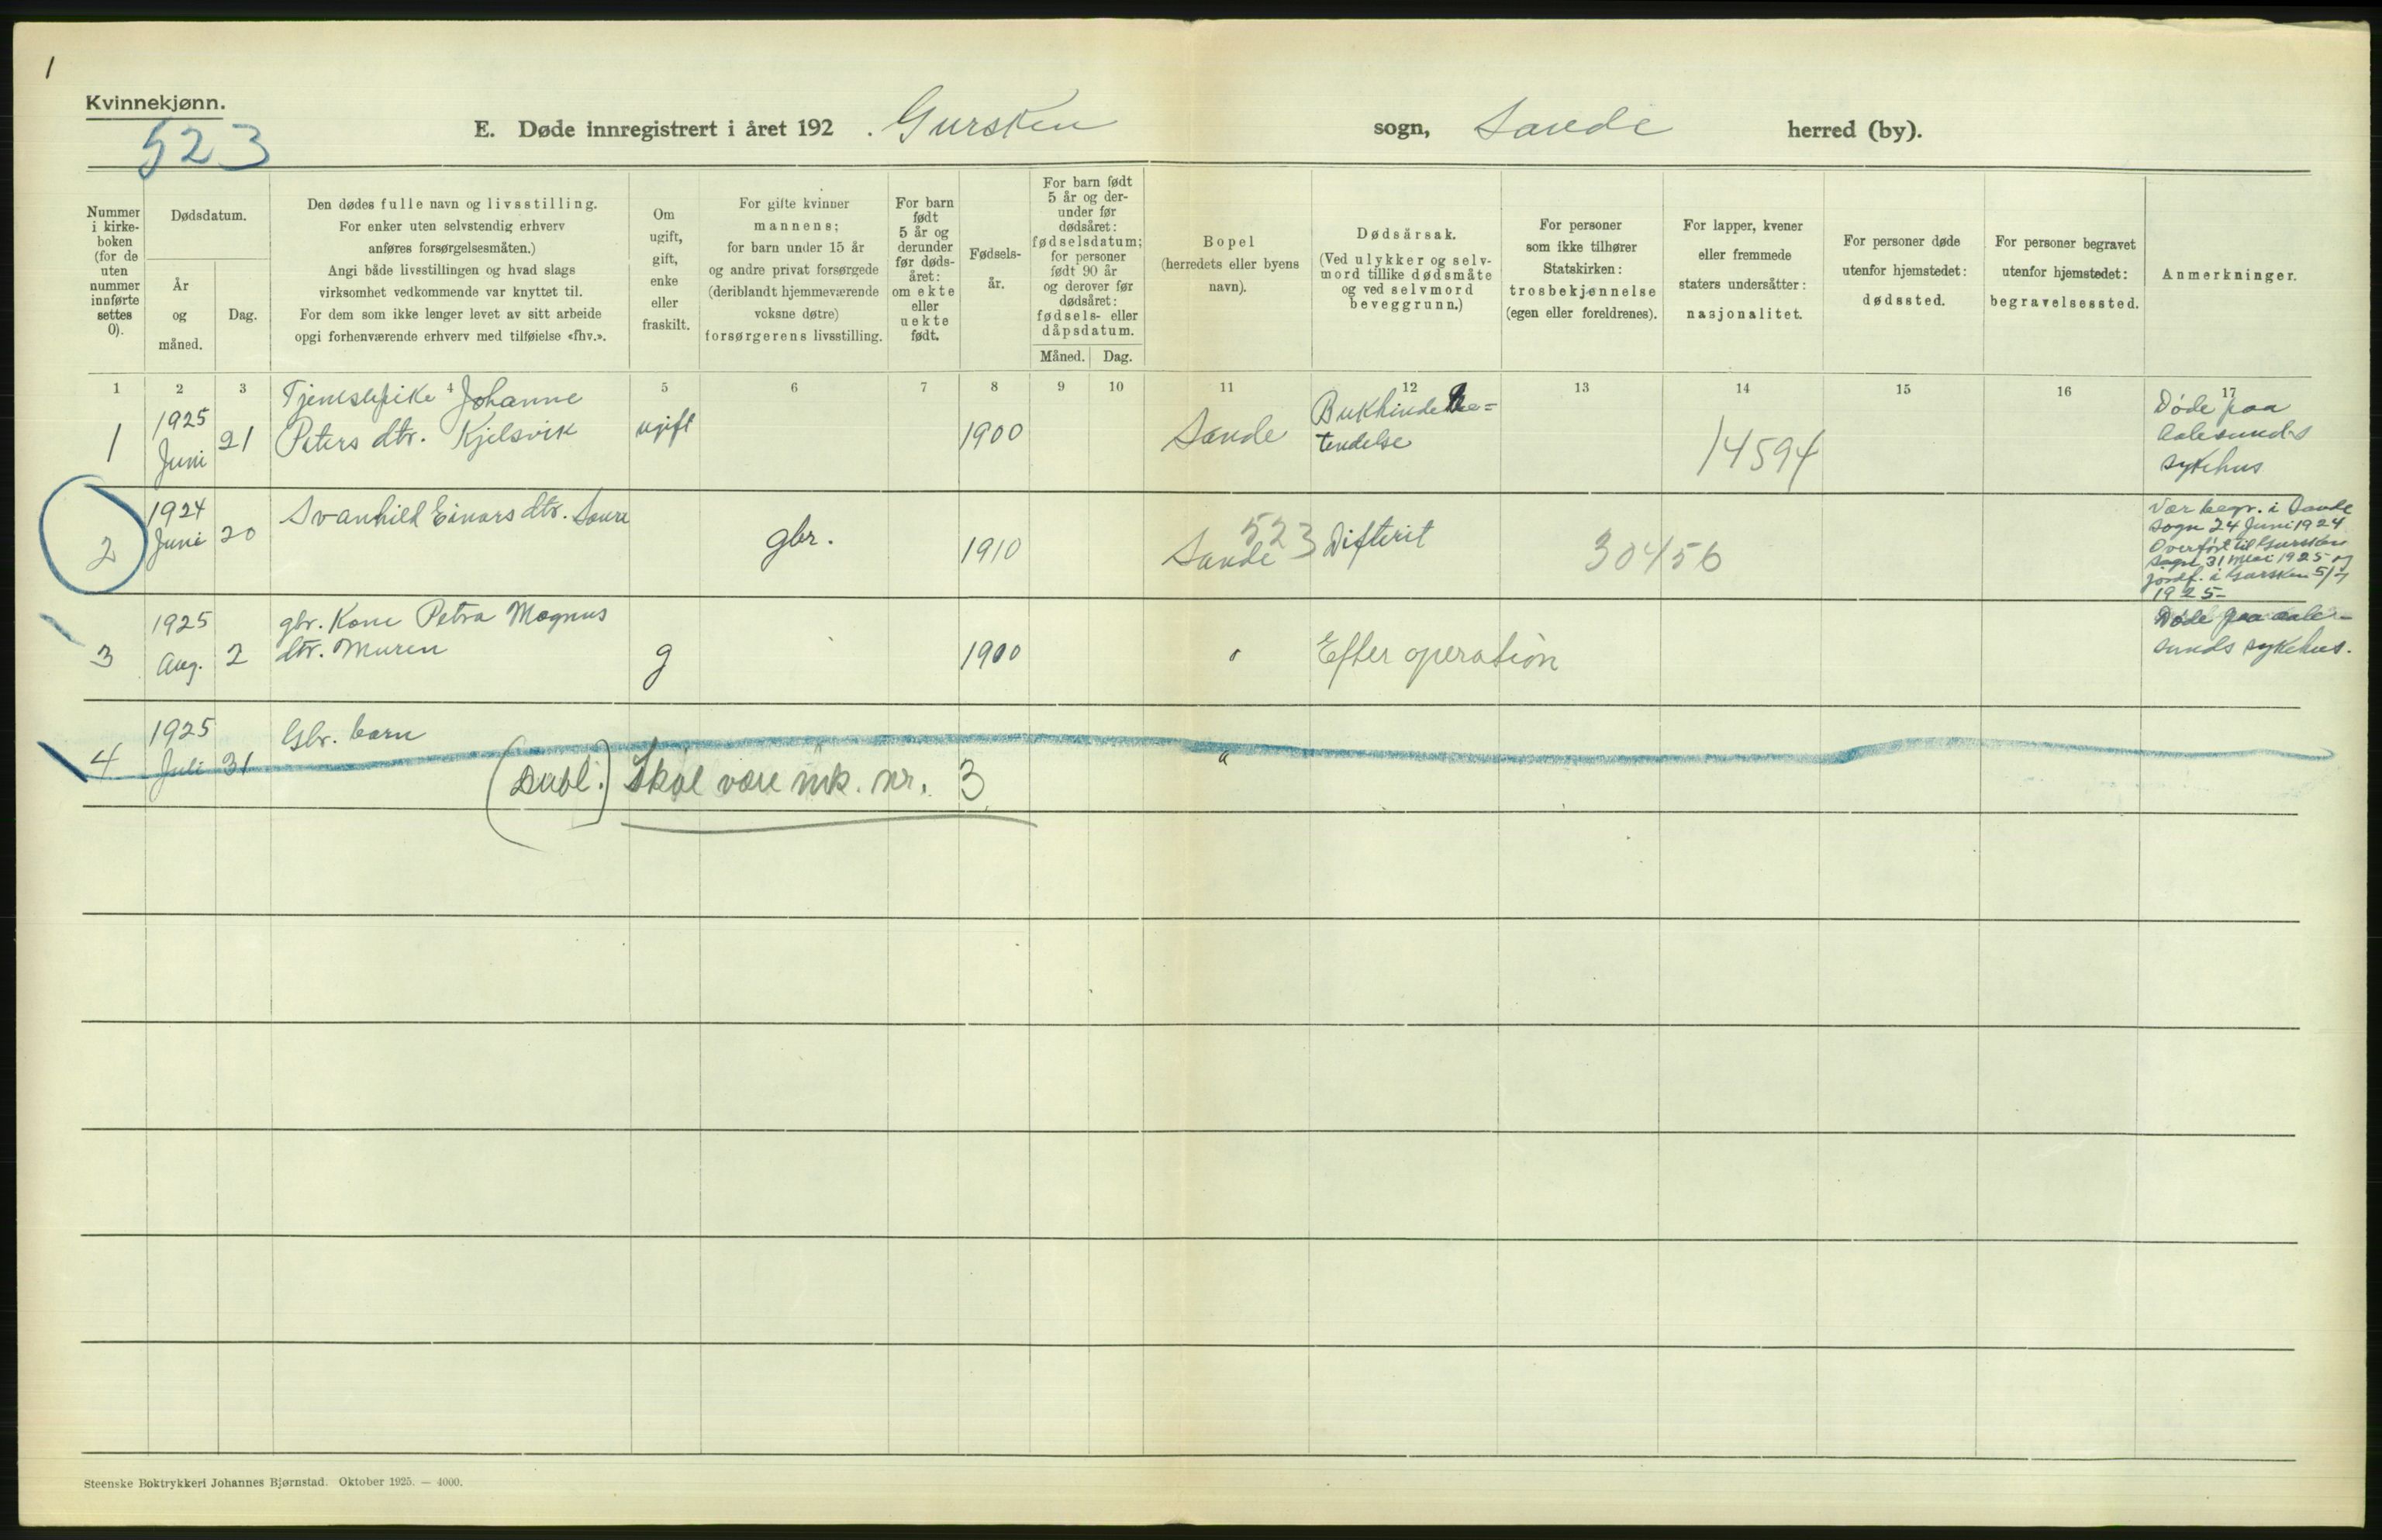 1
Kvinnekjønn.
523
E. Døde innregistrert i året 192 . Gursken sogn, Sande herred (by).
Nummer i kirkeboken (for de uten nummer innførte settes 0).
Dødsdatum.
År og måned.
Dag.
Den dødes fulle navn og livsstilling.
For enker uten selvstendig erhverv
anføres forsørgelsesmåten.)
Angi både livsstillingen og hvad slags
virksomhet vedkommende var knyttet til.
For dem som ikke lenger levet av sitt arbeide
opgi forhenværende erhverv med tilføielse «fhv.».
Om ugift, gift, enke eller fraskilt.
For gifte kvinner
mannens;
for barn under 15 år
og andre privat forsørgede
(deriblandt hjemmeværende
voksne døtre)
forsørgerens livsstilling.
For barn født 5 år og derunder før dødsåret: om ekte eller uekte født.
Fødselsår.
For barn født
5 år og der-
under før
dødsåret:
fødselsdatum;
for personer
født 90 år
og derover før
dødsåret:
fødsels- eller
dåpsdatum.
Måned. Dag.
Bopel
(herredets eller byens
navn).
Dødsårsak.
(Ved ulykker og selv-
mord tillike dødsmåte
og ved selvmord
beveggrunn.)
For personer
som ikke tilhører
Statskirken:
trosbekjennelse
(egen eller foreldrenes).
For lapper, kvener
eller fremmede
staters undersåtter:
nasjonalitet.
For personer døde
utenfor hjemstedet:
dødssted.
For personer begravet
utenfor hjemstedet:
begravelsessted.
Anmerkninger.
1 2 3 4 5 6 7 8 9 10 11 12 13 14 15 16 17
1
1925
Juni
21
Tjenestepike Johanne
Peters dtr. Kjelsvik
ugift
1900
Sande
Bukhindebe=
tendelse
14594
Døde paa
Aalesunds
sykehus
2
1924
Juni
20
Svanhild Einars dtr. Saure
gbr.
1910
523
Sande
Difterit
30456
Var begr. i Sande
sogn 24 Juni 1924
Overført til Gursken
sogn 31 Mai 1925 og
jordf. i Gursken 5/7
1925-
3
1925
Aug.
2
gbr. Kone Petra Magnus
dtr. Muren
g
1900
"
Efter operation
Døde paa Aale-
sunds sykehus.
4
1925
Juli
31
Gbr. barn
"
"
(Dubl.) Skal være mk. nr. 3
Steenske Boktrykkeri Johannes Bjørnstad. Oktober 1925. — 4000.